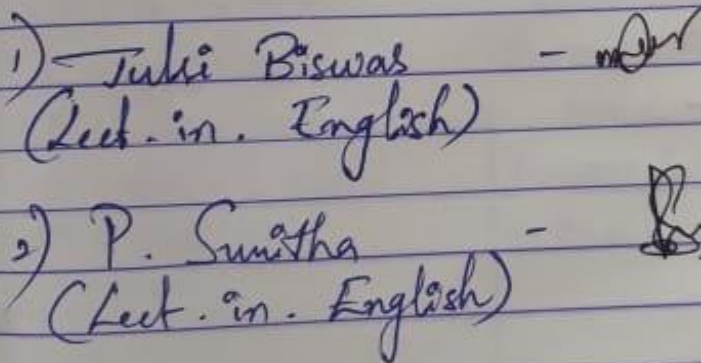 1) Juhi Biswas -
(Lect. in. English)
2) P. Sunitha -
(Lect. in. English)